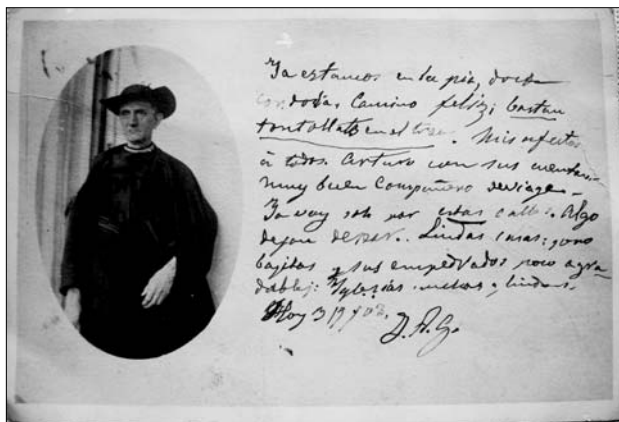 Ya estamos en la pía, docta
Córdoba. Camino feliz; bastan
en el tren. Mis afectos
á todos. Arturo con sus cuentos
muy buen compañero de viage.
Ya voy solo por estas calles. Algo
dejan desear.. Lindas casas; pero
bajitas y sus empedrados poco agra
dables: Yglesias muchas y lindas.